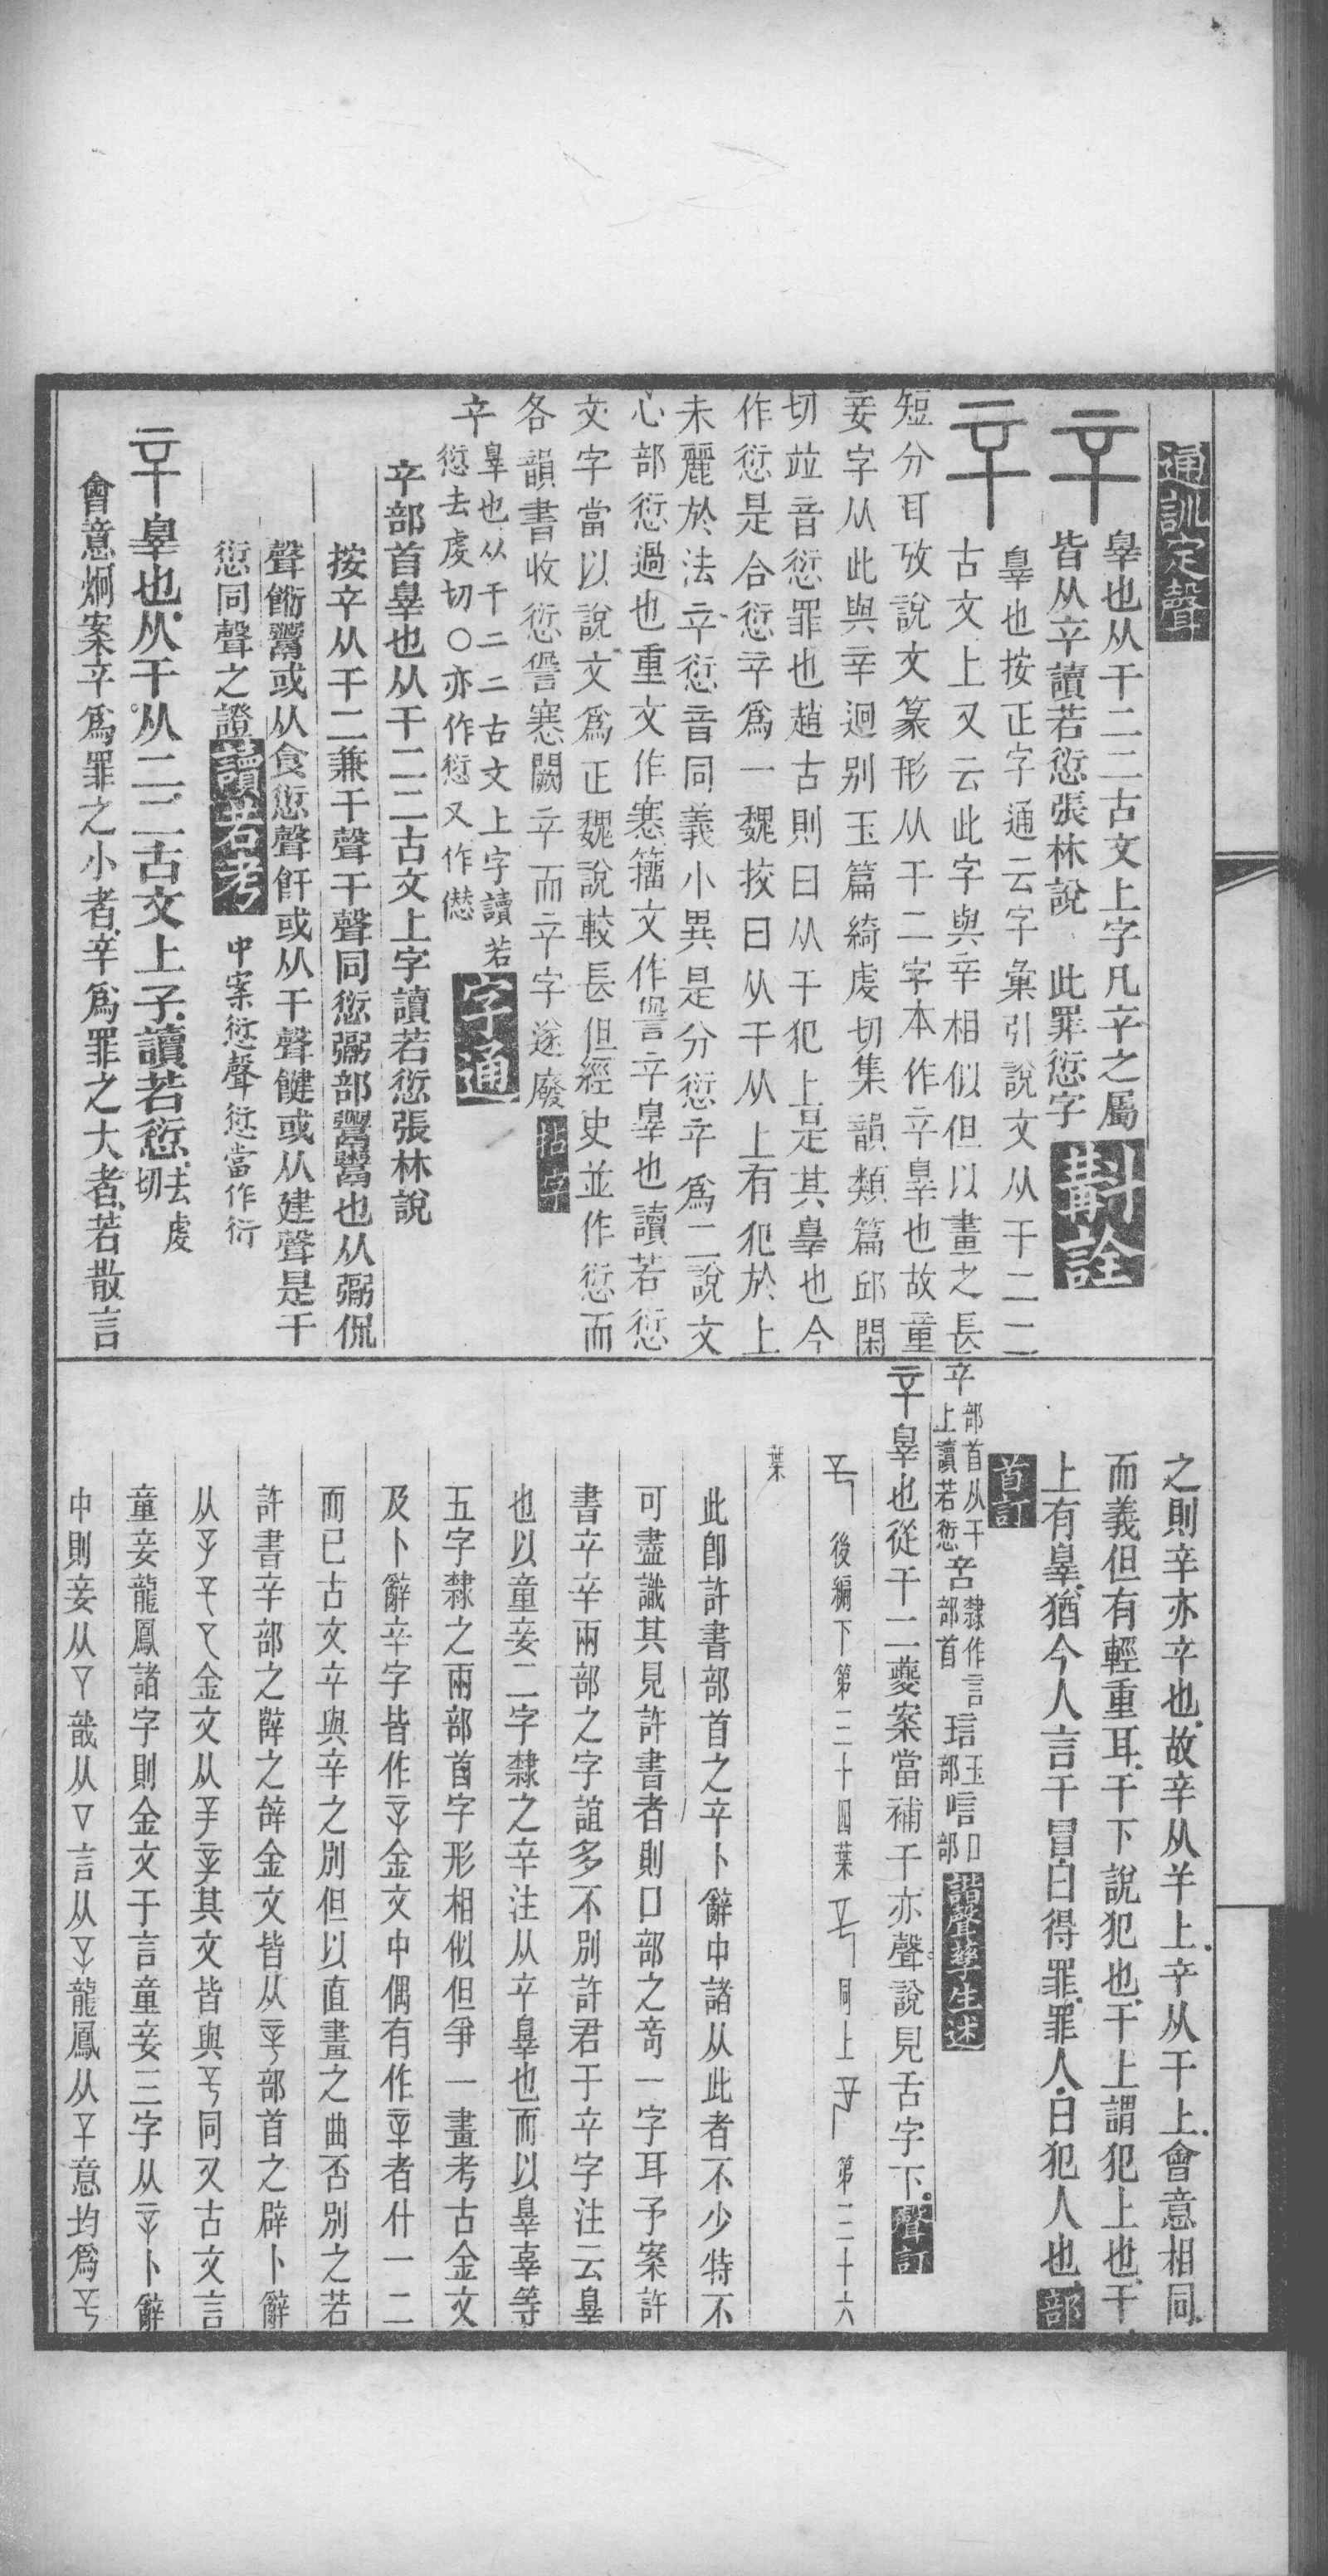 通訓定聲
䇂 辠也从干二二古文上字凡䇂之屬
皆从䇂讀若愆張林說 此罪愆字 斠詮
䇂 辠也按正字通云字彙引說文从干二二
古文上又云此字與辛相似但以畫之長
短分耳攷說文篆形从干二字本作䇂辠也故童
妾字从此與辛迥别玉篇綺虔切集韻類篇邱閑
切竝音愆罪也趙古則曰从干犯上是其辠也今
作愆是合愆䇂爲一魏挍曰从干从上有犯於上
未麗於法䇂愆音同義小異是分愆䇂爲二說文
心部愆過也重文作𡫼籀文作𠎝䇂辠也讀若愆
文字當以說文爲正魏說較長但經史並作愆而
各韻書收愆𠎝𡫼闕䇂而䇂字遂廢 拈字
䇂 辠也从干二二古文上字讀若
愆去虔切〇亦作愆又作 字通
䇂部首辠也从干二二古文上字讀若愆張林說
按䇂从干二兼干聲干聲同愆䰜部鬻鬻也从䰜侃
聲餰鬻或从食愆聲飦或从干聲健或从建聲是干
愆同聲之證 讀若考 中案愆聲愆當作衍
䇂 辠也从干从二二古文上子讀若愆去虔
切
會意炯案䇂爲罪之小者辛爲罪之大者若散言
之則辛亦䇂也故辛从𢆉上䇂从干上會意相同
而義但有輕重耳干下說犯也干上謂犯上也干
上有辠猶今人言干冒曰得罪罪人曰犯人也 部
首訂
䇂 部首从干
上讀若愆 䇂 隸作言
部首 琂 玉
部 唁 口
部 諧聲孳生述
䇂 辠也從干二夔案當補干亦聲說見舌字下 聲訂
後編下第三十四葉 同上 第三十六
葉
此即許書部首之䇂卜辭中諸从此者不少特不
可盡識其見許書者則口部之咅一字耳予案許
書䇂辛兩部之字誼多不別許君于䇂字注云辠
也以童妾二字隸之辛注从䇂辠也而以辠辜等
五字隸之兩部首字形相似但爭一畫考古金文
及卜辭辛字皆作 金文中偶有作 者什一二
而已古文䇂與辛之別但以直畫之曲否別之若
許書辛部之辥之辪金文皆从 部首之辟卜辭
从 金文从 其文皆與 同又古文言
童妾龍鳳諸字則金文于言童妾三字从 卜辭
中則妾从 哉从 言从 龍鳳从 意均爲